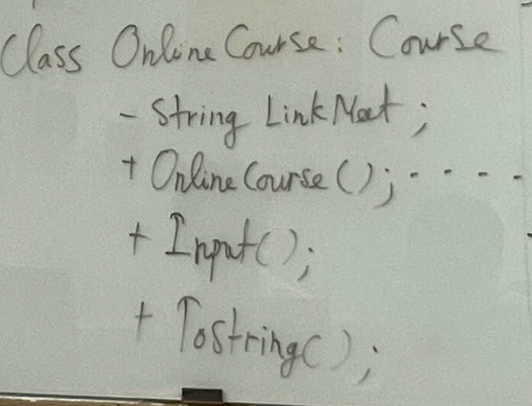 Class OnlineCourse: Course
- String LinkMeet;
+ OnlineCourse(); - - - -
+ Input();
+ Tostring();